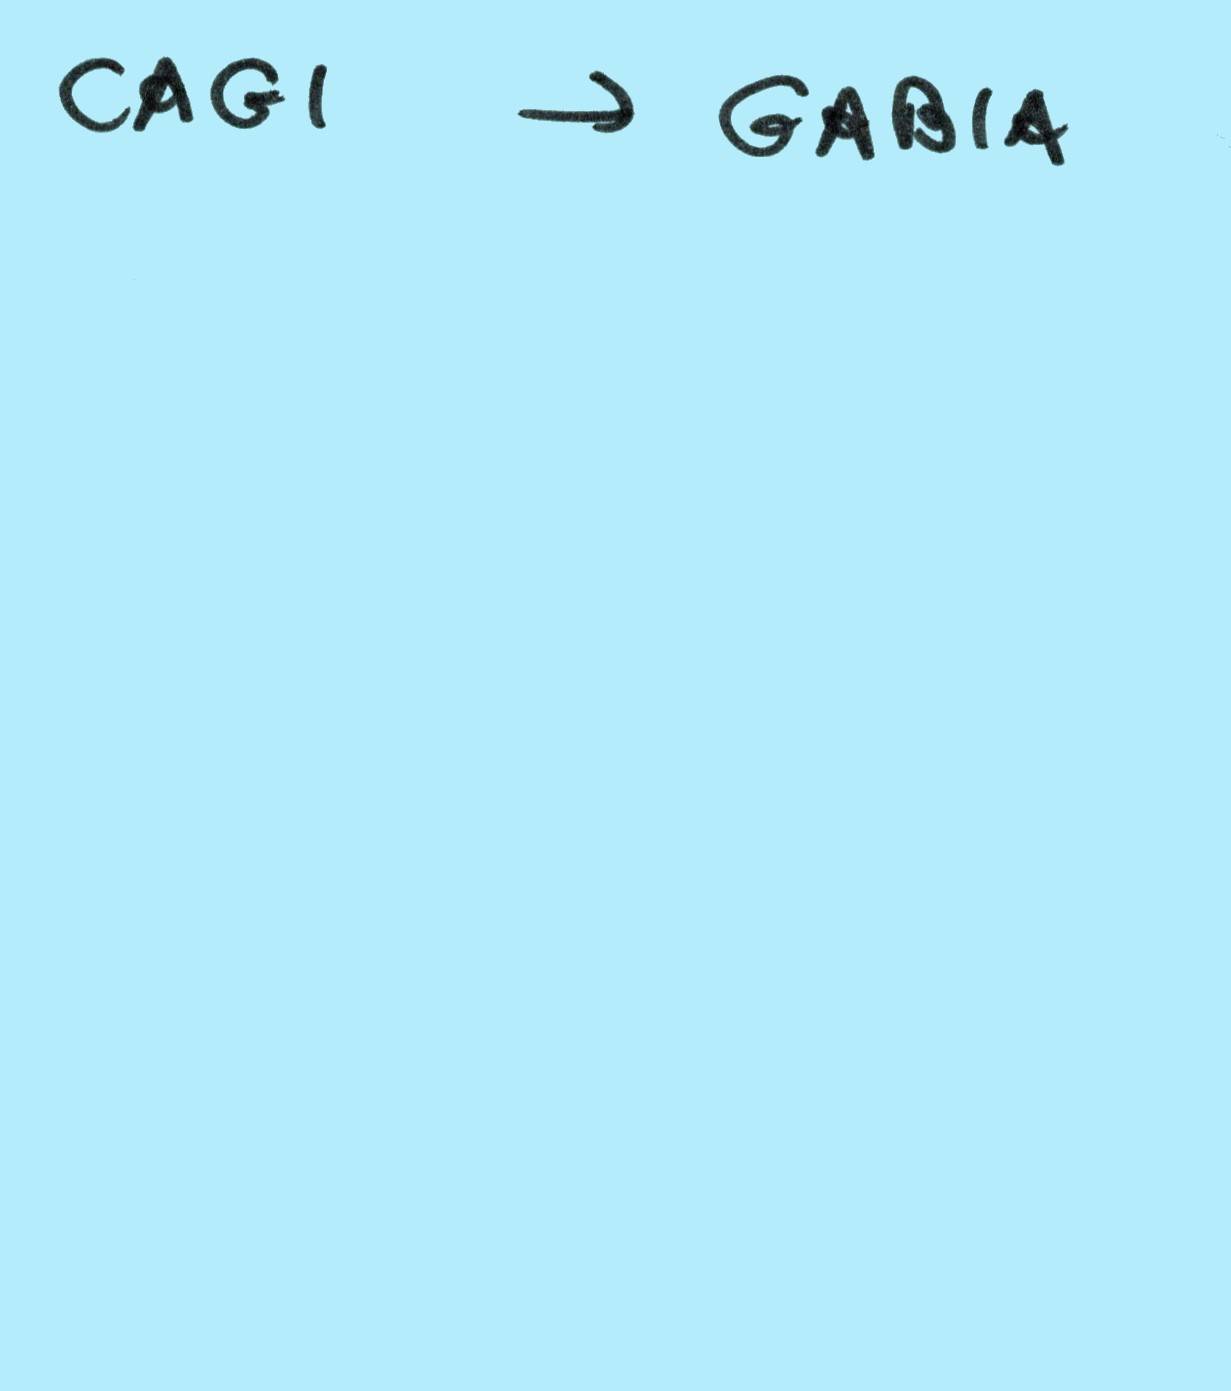 CAGI → GABIA